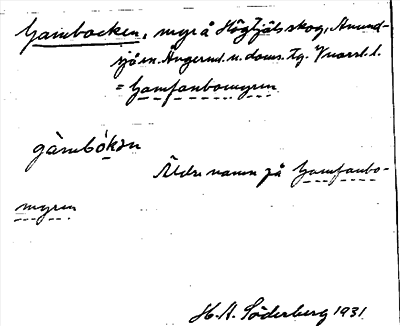 Gambocken, myr å Högtjäls skog, Anund-
sjö sn. Ångerml. n. doms. Tg.
= Gamfanbomyren
gàmbókɜn
Äldre namn på Gamfanbo-
myren
H. A. Söderberg 1931